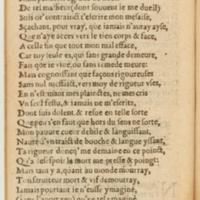 De tel ma heur (dont souvent ie me dueil)
Luis or' contrainct t'escrire mon mesaise,
Sçachant, pour vray, que iamais n'auray ayse,
Que n'aye acces vers le tien corps & face,
A celle fin que tout mon mal efface,
Car toy seule es, qui sans grande demeure,
Fais que ie viue, ou sans remede meure:
Mais cognoissant que façons rigoureuses
Sans nul mesfaict, vers moy de rigueur vses,
Et n'est mes plainctes, ne me cri
Vn seul si ie t'escrits,
Dont suis dolent, & reste en telle sorte
Que peu s'en faut que hors du sens ne sorte,
Mon pauure cueur debile & languissant,
Naure d'vn traict de bouche & langue yssant,
Ta rigueur donc me demaine en ce poinct,
Qu'a desespoir la mort me presse & poingt:
Mais tant y a, quant au monde mourray,
Ton seruiteur mort & vif demourray,
Iamais pourtant ie n'eusse ymaginé,